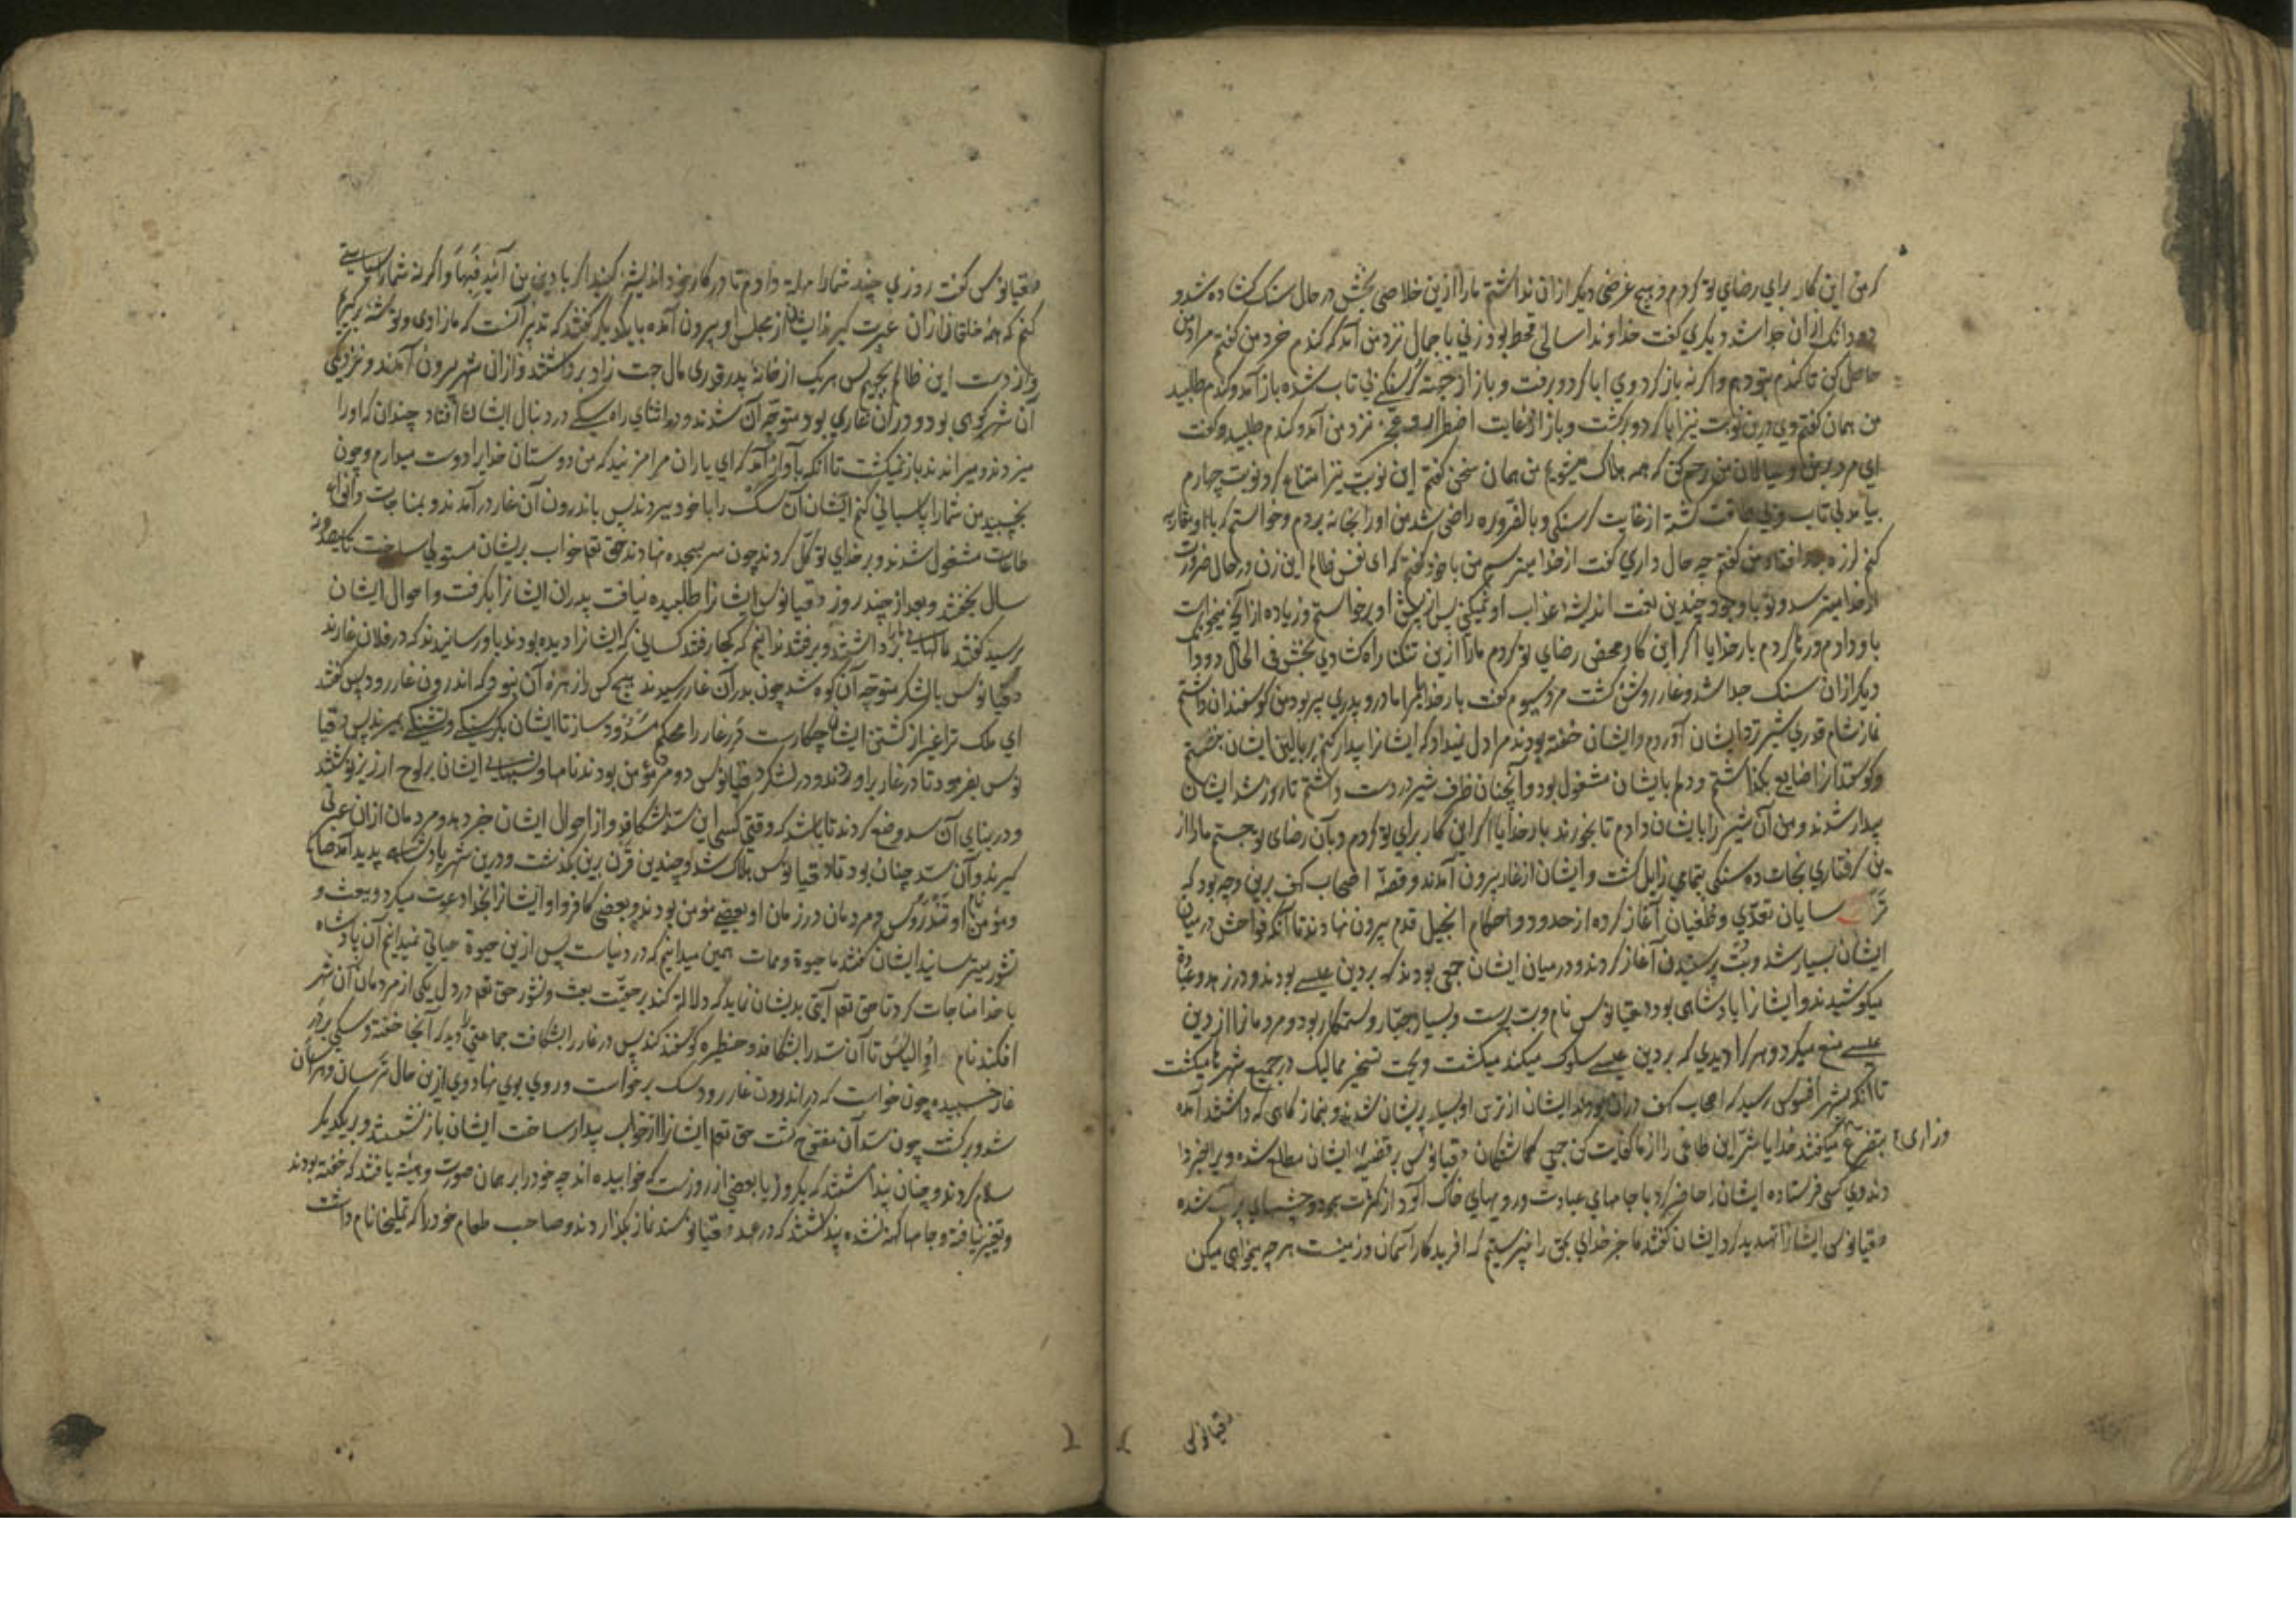 که من این کار برای رضای تو کردم و هیچ غرضی دیگر ازان نداشتم ما را ازین خلاصی بخش در حال سنک کشاده شد و
دودانک ازان جدا شد دیکری کفت خداوندا سالی قحط بود زنی با جمال نزد من آمد که کندم خرد من کفتم مراد من
حاصل کن تا کندم بتو دهم و اکر نه باز کرد وی ابا کرد و برفت و باز از جهة کرسنکی بی تاب شده باز آمد و کندم طلبید
من همان کفتم وی درین نوبت نیز ابا کرد و برکشت و باز از غایت اضطراب و عجز نزد من آمد و کندم طلبید و کفت
ای مرد بر من و عیالان من رحم کن که همه هلاک میشویم من همان سخن کفتم این نوبت نیز امتناع کرد نوبت چهارم
بیامد بی تاب و بی طاقت کشته از غایت کرسنکی و بالضروره راضی شد من او را بخانه بردم و خواستم که با او مقاربه
کنم لرزه برو افتاد من کفتم چه حال داری کفت از خدا میترسم من با خود کفتم که ای نفس ظالم این زن در حال ضرورت
از خدا میترسد و تو با وجود چندین نعمت اندیشه عذاب او نمیکنی پس از پیش او برخواستم و زیاده از آنچه میخواست
باو دادم و رها کردم بار خدایا اکر این کار محض رضای تو کردم ما را ازین تنکنا راه کشادی بخش فی الحال دودانک
دیکر ازان سنک جدا شد و غار روشن کشت مرد سیوم کفت بار خدایا مرا مادر و پدری پیر بود من کوسفندان داشتم
نماز شام قدری شیر نزد ایشان آوردم و ایشان خفته بودند مرا دل نمیداد که ایشانرا بیدار کنم بر بالین ایشان
و کوسفندانرا ضایع بکذاشتم و دلم بایشان مشغول بود و آنچنان ظرف شیر در دست داشتم تا روز شد ایشان
بیدار شدند و من آن شیر را بایشان دادم تا بخورند بار خدایا اکر این کار برای تو کردم و بآن رضای تو جستم ما را از
ین کرفتاری نجات ده سنک بتمامی زایل کشت و ایشان از غار بیرون آمدند و قصهٔ اصحاب کهف برین وجه بود که
ترسایان تعدی و طغیان آغاز کرده از حدود و احکام انجیل قدم بیرون نهادند تا آنکه فواحش در میان
ایشان بسیار شد و بت پرستیدن آغاز کردند و در میان ایشان جمعی بودند که بر دین عیسی بودند و در زهد و عبادة
میکوشیدند و ایشانرا پادشاهی بود دقیانوس نام و بت پرست و بسیار جبار و ستمکار بود و مردمانرا از دین
عیسی منع میکرد و هر کرا دیدی که بر دین عیسی سلوک میکند میکشت و بجهت تسخیر ممالک در جمیع شهرها میکشت
تا آنکه بشهر افسوس رسید که اصحاب کهف دران بودند ایشان از ترس او بسیار پریشان شدند و بنماز کاهی که داشتند آمده
بتضرع و زاری میکفتند خدایا شر این طاغی را از ما کفایت کن جمعی کماشتکان دقیانوس بر قضیهٔ ایشان مطلع شده ویرا خبر دا
دند وی کسی فرستاده ایشان را حاضر کرد با جامهای عبادت و رویهای خاک آلود از کثرت سجود و چشمهای پر آب شده
دقیانوس ایشانرا تهدید کرد ایشان کفتند ما جز خدای بحق را نپرستیم که افریدکار آسمان و زمینست هر چه میخواهی میکن
دقیانوس
دقیانوس کفت روزی چند شما را مهلة دادم تا در کار خود اندیشه کنید اکر با دین من آئید فبها و اکر نه شما را سیاستی
کنم که همهٔ خلقان ازان عبرت کیرند ایشان از مجلس او بیرون آمده با یکدیکر کفتند که تدبیر آنست که ما زادی و توشه برکیریم
و از دست این ظالم بجهیم پس هریک از خانهٔ پدر قدری مال جهت زاد برداشتند و ازان شهر بیرون آمدند و نزدیک
آن شهر کوهی بود و در آن غاری بود متوجه آن شدند و در اثنای راه سکی در دنبال ایشان افتاد چندان که او را
میزدند و میراندند باز نمیکشت تا آنکه بآواز آمد که ای یاران مرا مزنید که من دوستان خدایرا دوست میدارم و چون
بخسپید من شما را پاسبانی کنم ایشان آن سک را با خود ببردند پس باندرون آن غار در آمدند و بمناجات و انواع
طاعات مشغول شدند و بر خدای توکل کردند چون سر بسجده نهادند حق تعم خواب بریشان مستولی ساخت تا سیصد و نه
سال بخفتند و بعد از چند روز دقیانوس ایشانرا طلبیده نیافت پدران ایشانرا بکرفت و احوال ایشان
پرسید کفتند مالهای ما را برداشتند و برفتند ندانیم که کجا رفتند کسانی که ایشانرا دیده بودند باو رسانیدند که در فلان غارند
دقیانوس با لشکر متوجه آن کوه شد چون بدر آن غار رسیدند هیچ کس را زهره آن نبود که اندرون غار رود پس کفتند
ای ملک ترا غرض از کشتن ایشان چکارست در غار را محکم مسدود ساز تا ایشان بکرسنکی و تشنکی بمیرند پس دقیا
نوس بفرمود تا در غار براوردند و در لشکر دقیانوس دو مرد مؤمن بودند نامها و نسبهای ایشان بر لوح ارزیز نوشتند
و در بنای آن سد وضع کردند تا باشد که وقتی کسی این سد بشکافد و از احوال ایشان خبر دهد و مردمان ازان عبرتی
کیرند و آن سد چنان بود تا دقیانوس هلاک شد و چندین قرن برین بکذشت و درین شهر پادشاهی پدید آمد صالح
و مؤمن نام او تندروس و مردمان در زمان او بعضی مؤمن بودند و بعضی کافر و او ایشانرا بخدا دعوت میکرد و ببعث و
نشور میترسانید ایشان کفتند ما حیوة و ممات همین میدانیم که در دنیاست پس ازین حیوة حیاتی نمیدانیم آن پادشاه
با خدا مناجات کرد تا حق تعم آیتی بدیشان نماید که دلالة کند بر حقیت بعث و نشور حق تعم در دل یکی از مردمان آن شهر
افکند نام او الیاس تا آن سد را بشکافد و حظیره کوسفند کند پس در غار را بشکافت جماعتی را دید که آنجا خفته و سکی بر در
غار خسبیده چون خواست که در اندرون غار رود سک برخواست و روی بوی نهاد وی ازین حال ترسان و هراسان
شد و برکشت چون سد آن مفتوح کشت حق تعم ایشانرا از خواب بیدار ساخت ایشان باز نشستند و بر یکدیکر
سلام کردند و چنان پنداشتند که یکروز یا بعضی از روزست که خوابیده اند چه خود را بر همان صورت و هیئة یافتند که خفته بودند
و تغیر نیافته و جامها کهنه نشده پنداشتند که در عهد دقیانوسند نماز بکذاردند و صاحب طعام خود را که تملیخا نام داشت